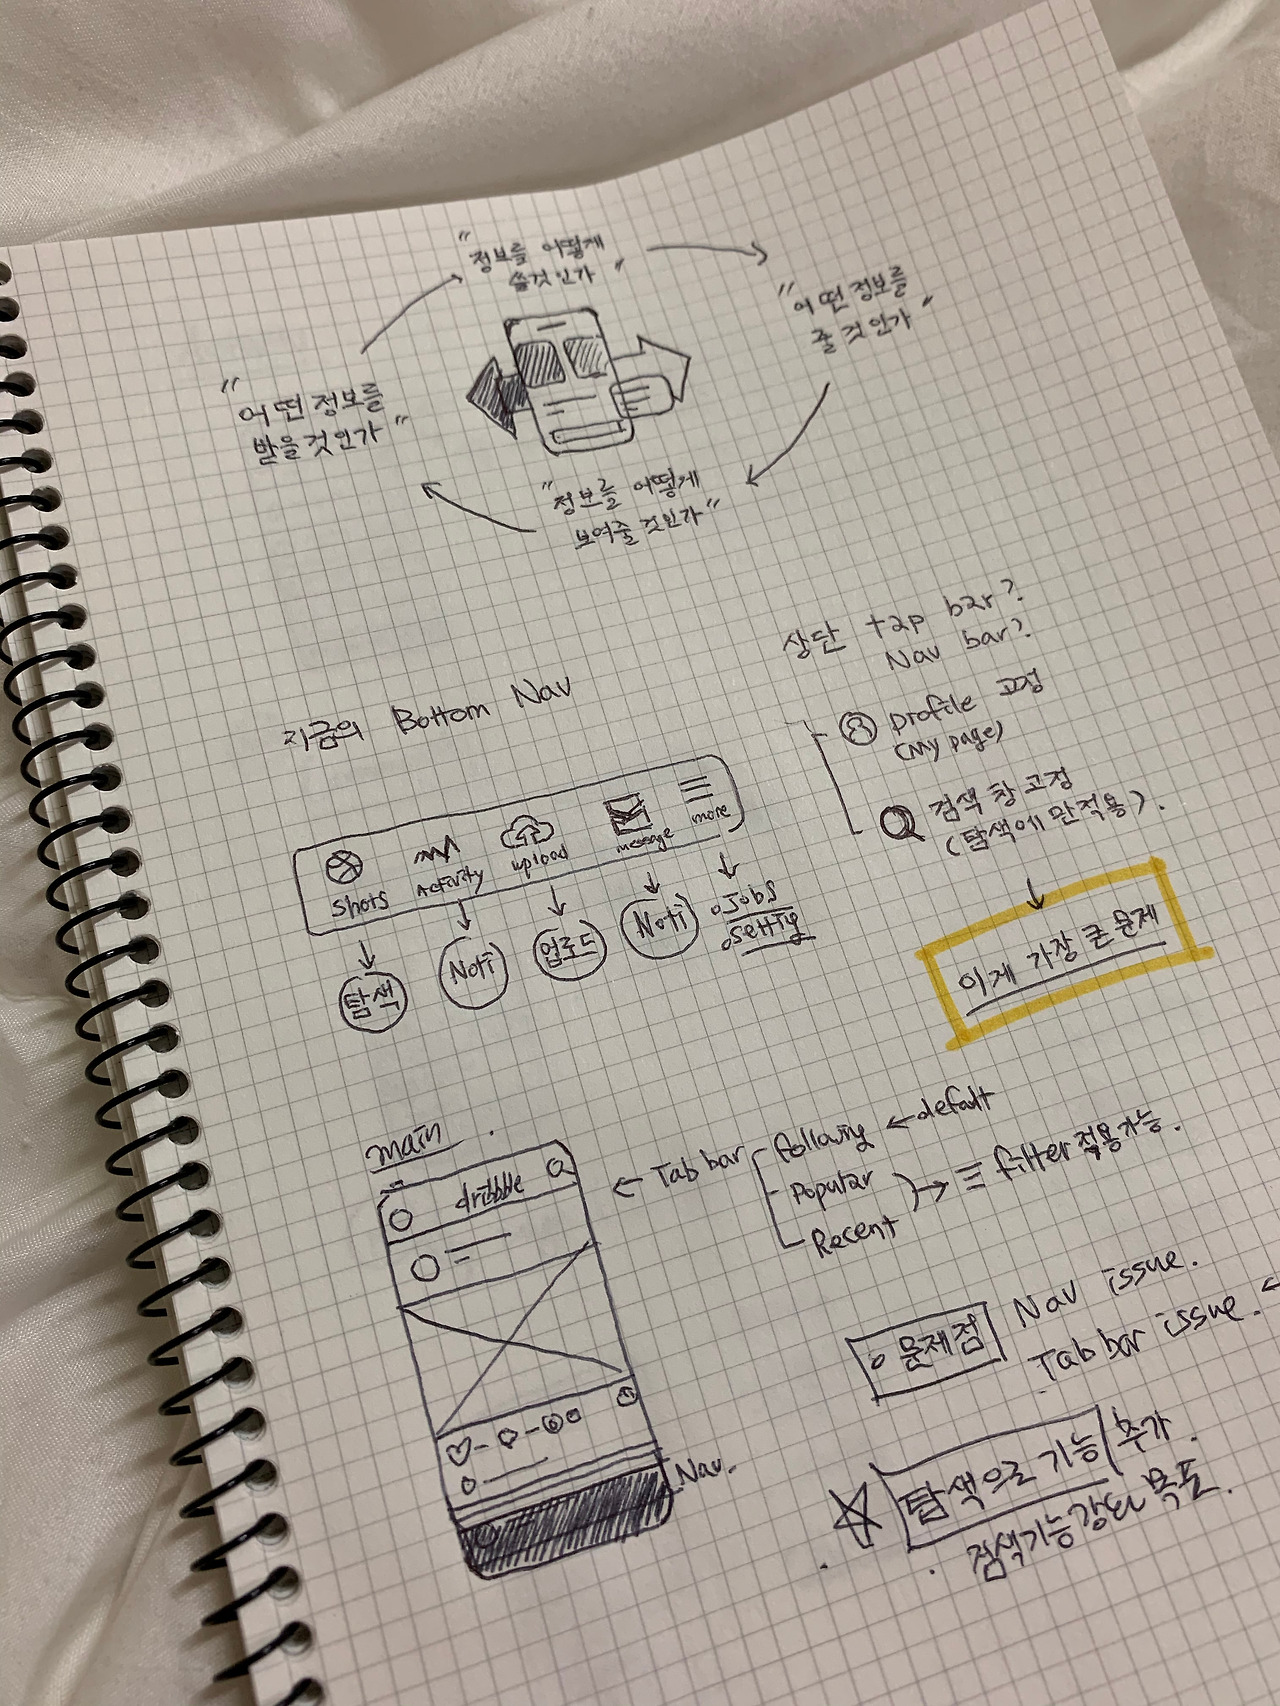 "정보를 어떻게
쓸것인가"
"어떤 정보를
줄 것인가"
"어떤 정보를
받을것인가"
"정보를 어떻게
보여줄것인가"
상단 tap bar?
Nav bar?
profile 고정
(my page)
검색 창 고정
(탐색에만적용).
이게 가장 큰 문제
지금의 Bottom Nav
shots
Activity
upload
message
more
탐색
Noti
업로드
Noti
Jobs
setting
main
dribbble
Nav.
← Tab bar
following ← defalt
Popular
Recent
→ filter 적용가능.
문제점
Nav issue.
Tab bar issue. ←
탐색으로 기능 추가.
검색기능강화 목표.